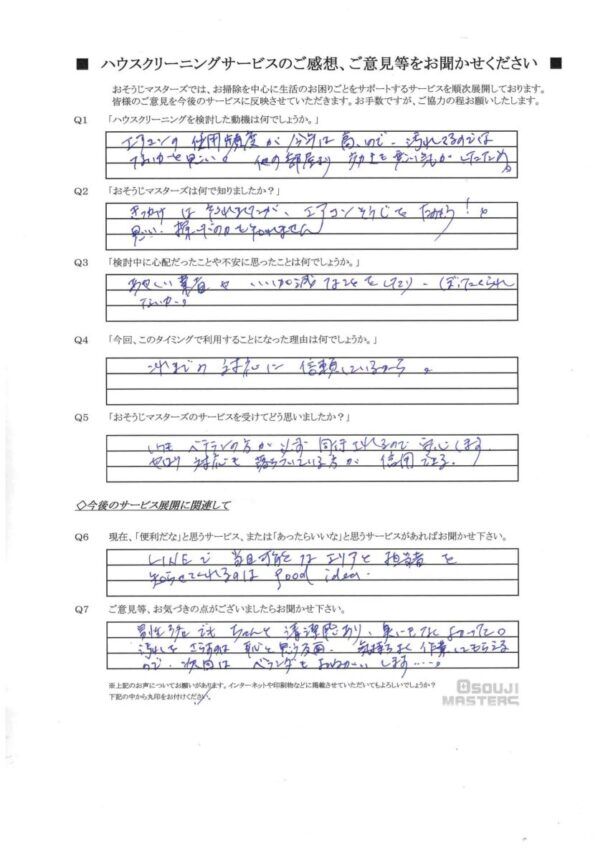 ■ ハウスクリーニングサービスのご感想、ご意見等をお聞かせください ■
おそうじマスターズでは、お掃除を中心に生活のお困りごとをサポートするサービスを順次展開しております。
皆様のご意見を今後のサービスに反映させていただきます。お手数ですが、ご協力の程お願いいたします。
Q1 「ハウスクリーニングを検討した動機は何でしょうか。」
エアコンの使用頻度が今年は高いので、汚れてるのでは
ないかと思い。他の部屋より
Q2 「おそうじマスターズは何で知りましたか？」
きっかけは忘れましたが、エアコンそうじをたのもう！と
思い
Q3 「検討中に心配だったことや不安に思ったことは何でしょうか。」
あやしい業者や いい加減なことをしたり、ぼったくられ
ないか。
Q4 「今回、このタイミングで利用することになった理由は何でしょうか。」
これまでの対応に信頼しているから。
Q5 「おそうじマスターズのサービスを受けてどう思いましたか？」
いつも ベテランの方が必ず同行されるので安心します。
やはり対応も落ちついている方が信用できる。
◇今後のサービス展開に関連して
Q6 現在、「便利だな」と思うサービス、または「あったらいいな」と思うサービスがあればお聞かせ下さい。
LINEで当日可能なエリアと担当者を
知らせてくれるのは good idea.
Q7 ご意見等、お気づきの点がございましたらお聞かせ下さい。
男性 ちゃんと清潔感あり、臭いもなくよかった。
気持ちよく作業してもらえる
ので、次回はベランダもおねがいします
※上記のお声についてお願いがあります。インターネットや印刷物などに掲載させていただいてもよろしいでしょうか？
下記の中から丸印をお付けください。
OSOUJI
MASTERS